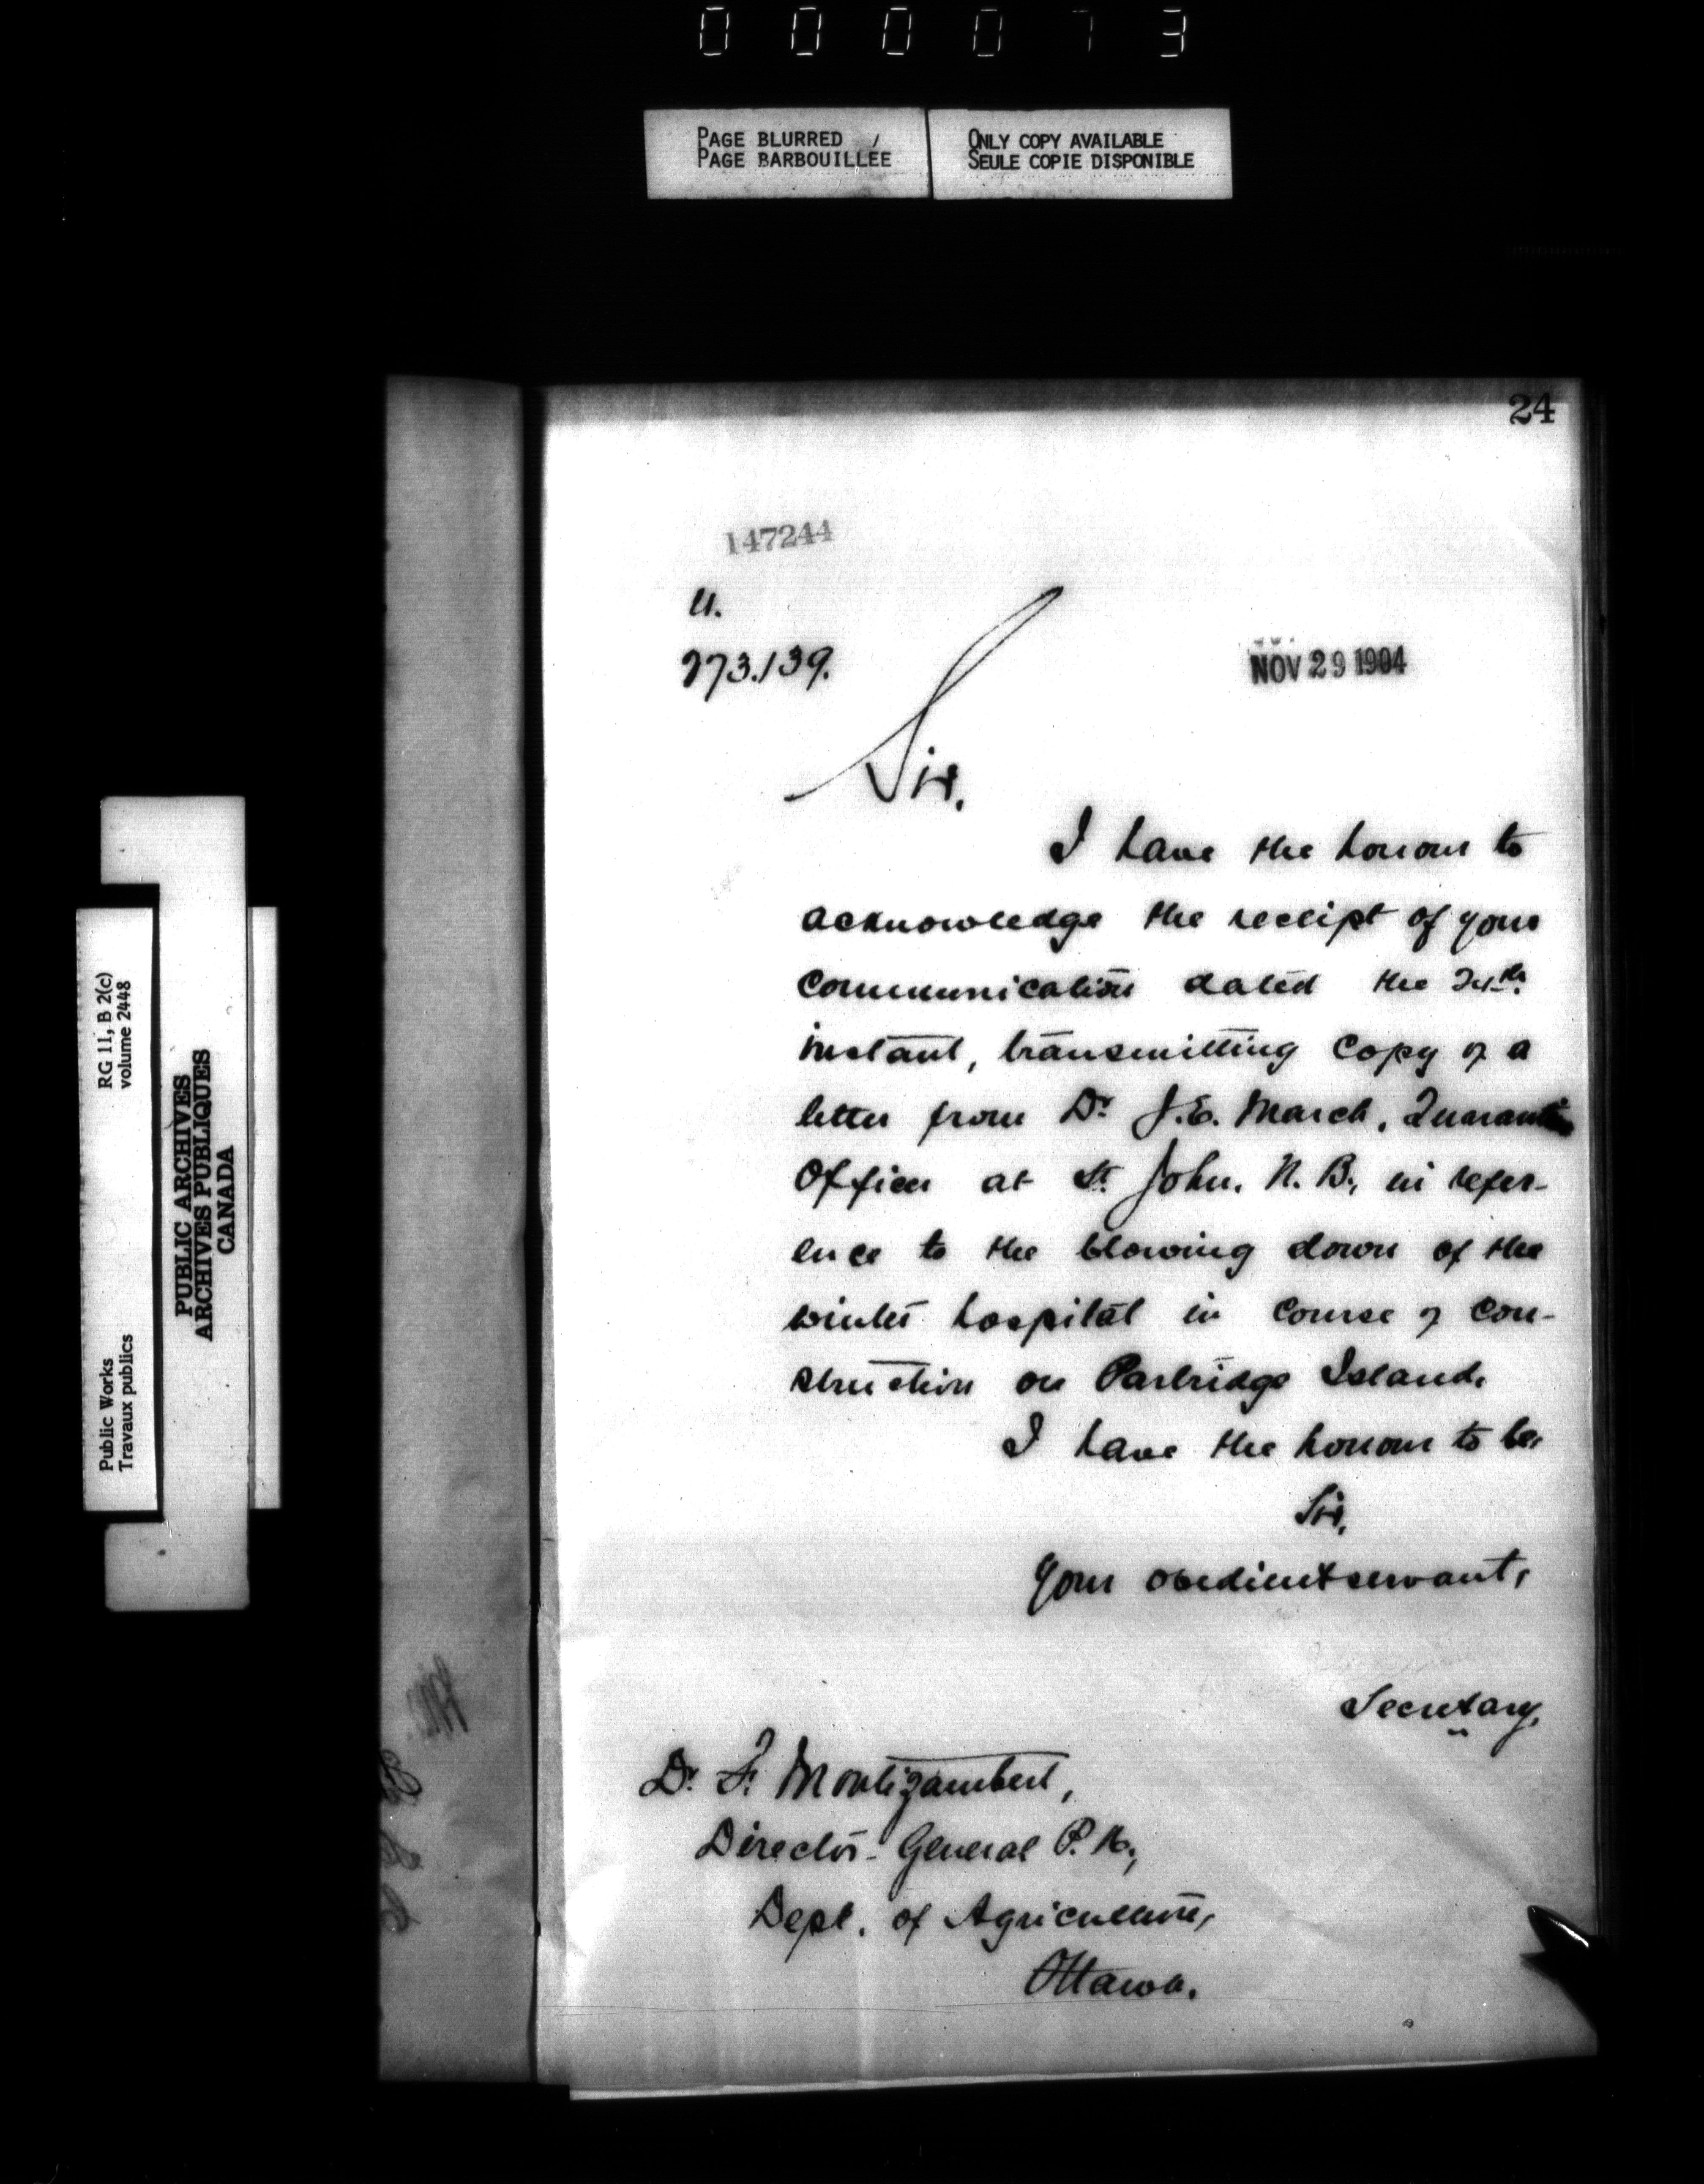 0 0 0 0 7 3
PAGE BLURRED
PAGE BARBOUILLÉE
ONLY COPY AVAILABLE
SEULE COPIE DISPONIBLE
24
147244
273.139.
NOV 29 1904
Sir,
I have the honour to
acknowledge the receipt of your
communication dated the 24th
instant, transmitting copy of a
letter from Dr J.E. March, Quarantine
Officer at St. John, N.B., in refer-
ence to the blowing down of the
winter hospital in course of con-
struction on Partridge Island.
I have the honour to be,
Sir,
Your obedient servant,
Secretary.
Dr. F. Montizambert,
Director-General P.H.,
Dept. of Agriculture,
Ottawa.
RG 11, B 2(c)
volume 2448
Public Works
Travaux publics
PUBLIC ARCHIVES
ARCHIVES PUBLIQUES
CANADA